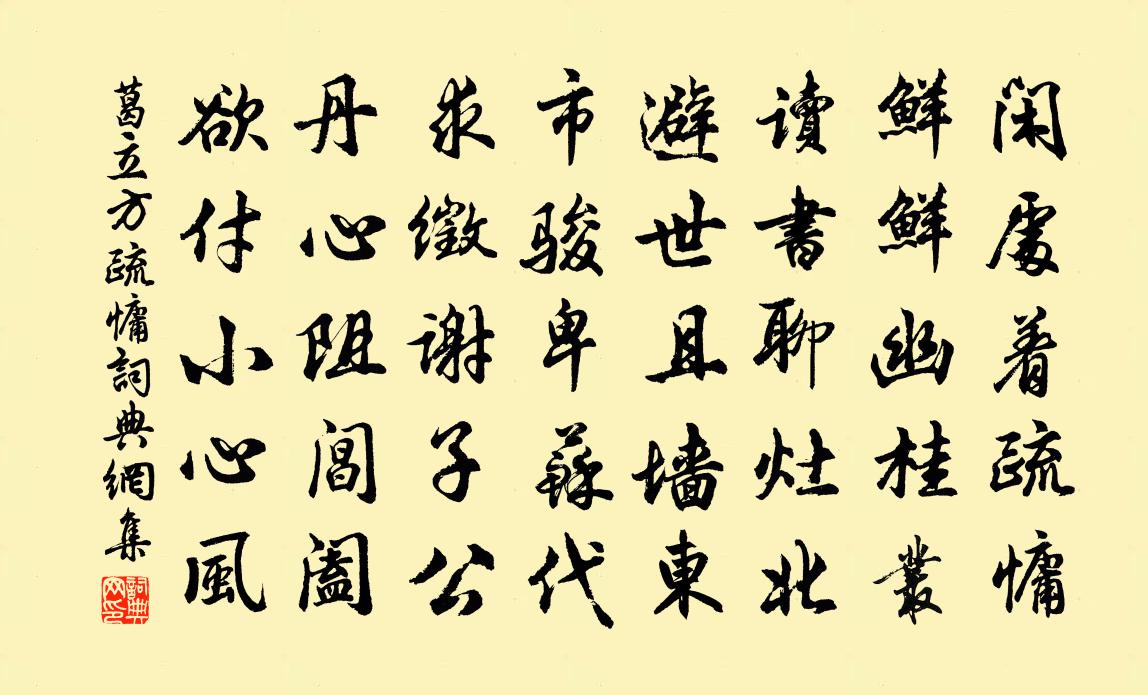 閑處着疏慵
鮮鮮幽桂叢
讀書聊灶北
避世且墻東
市駿卑蘇代
求徵謝子公
丹心阻閶闔
欲付小心風
葛立方疏慵詞典網集
詞典网印